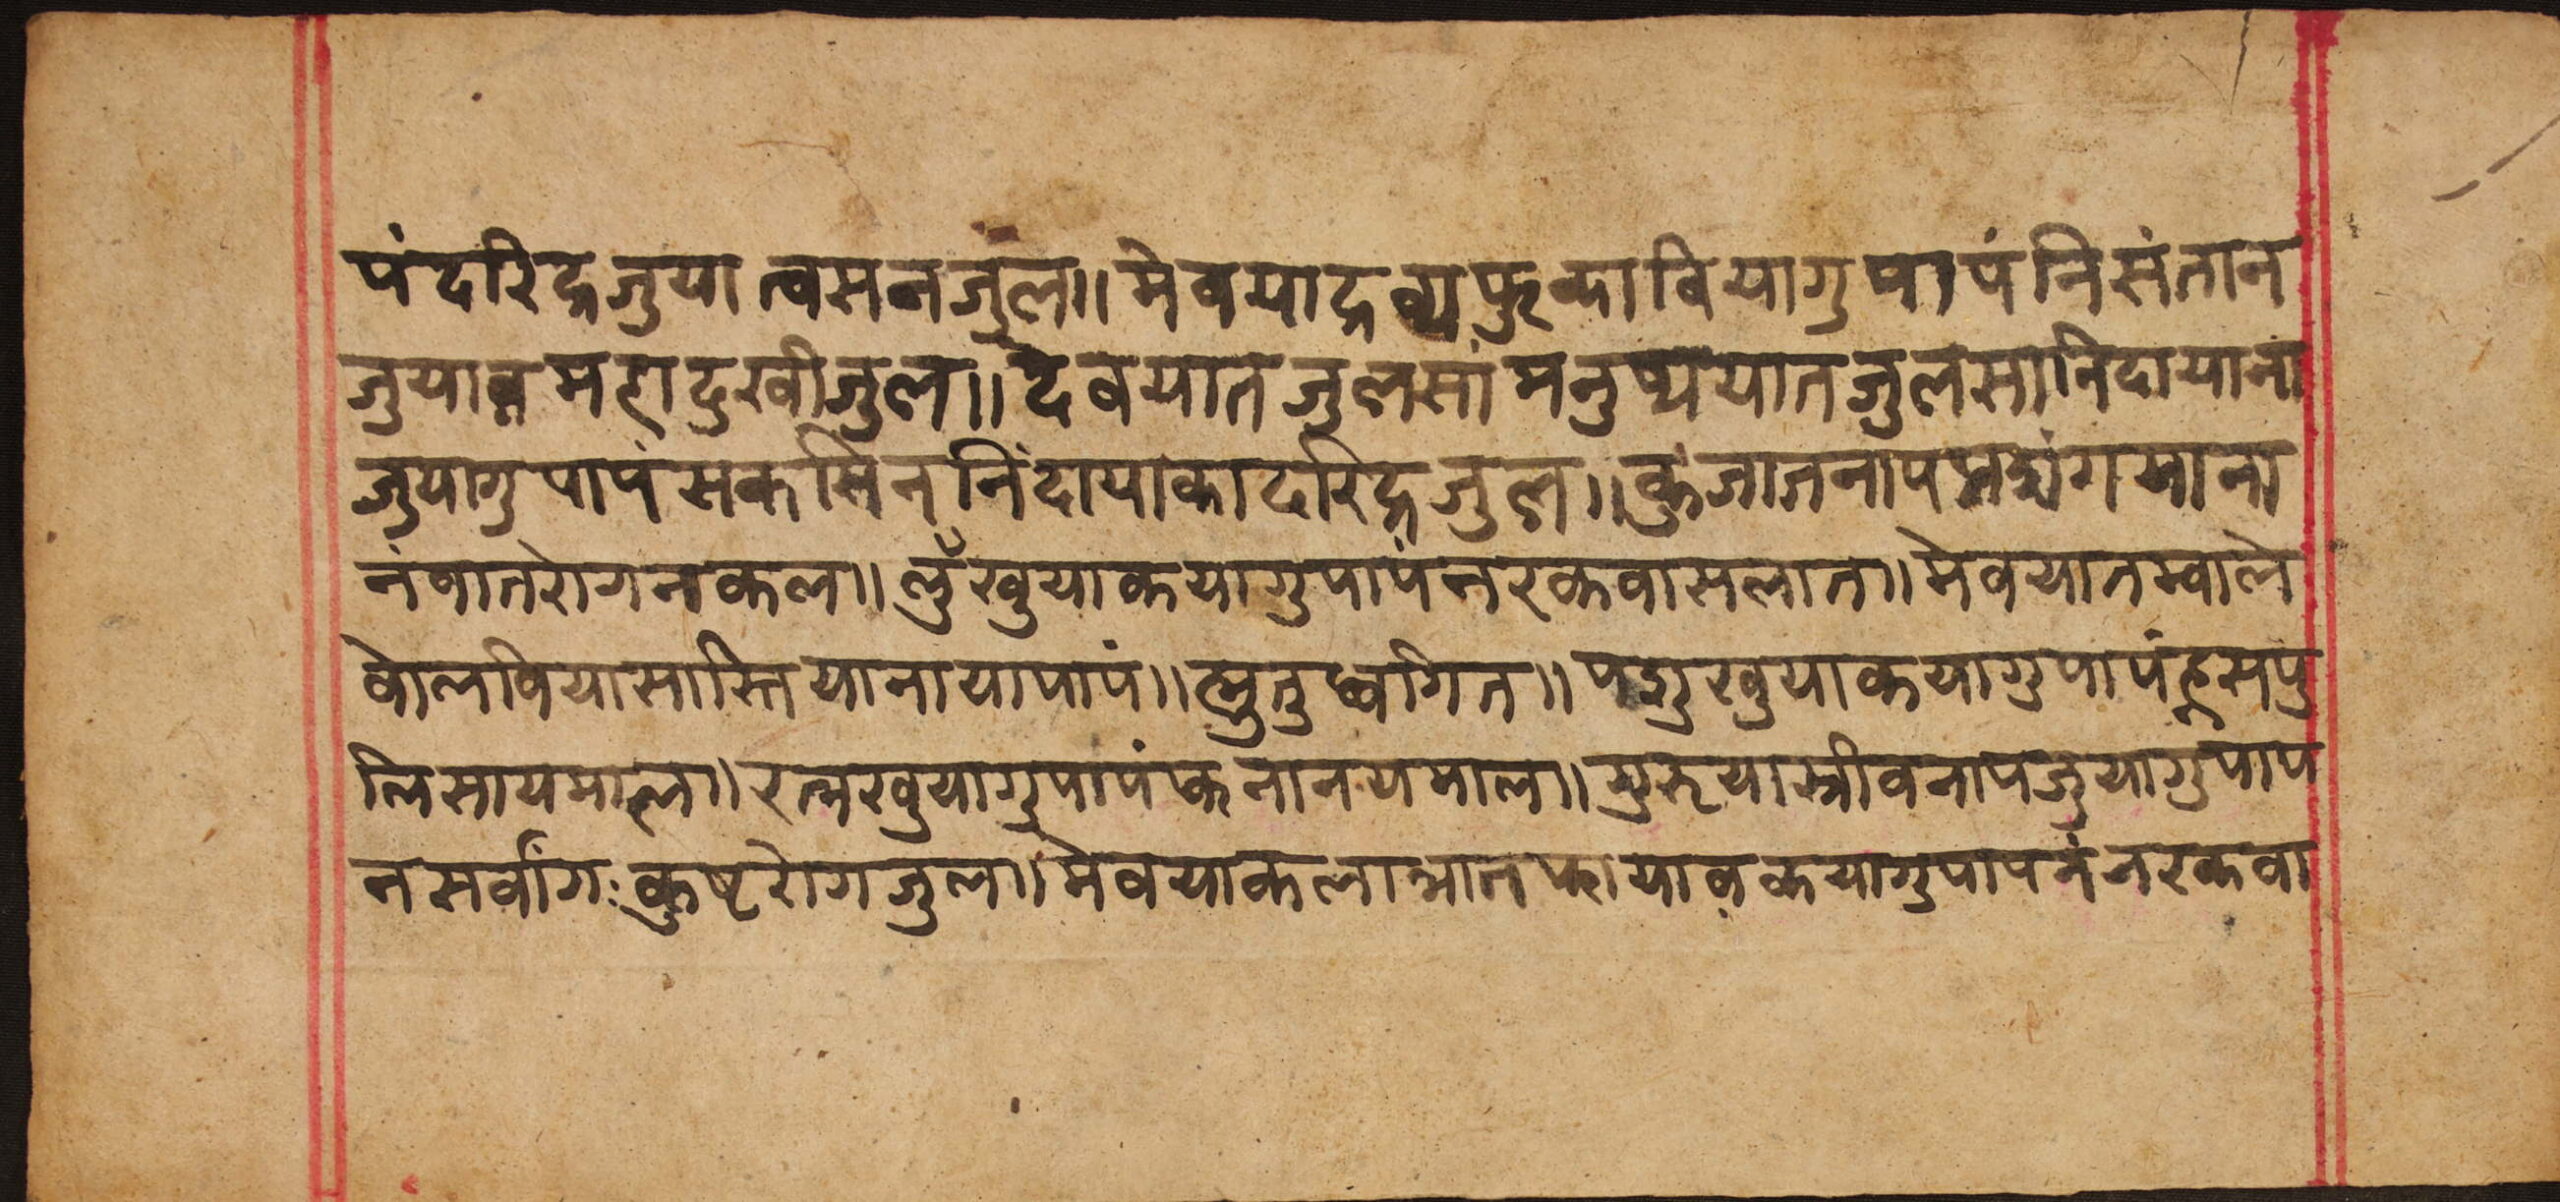 पं दरिद्र जुया त्वमनजुल॥ मेवयाद्रव्य फुकाबियागु पापं निसंतान
जुयाव महादुखीजुल॥ देवयात जुलसां मनुष्ययात जुलसा निंदायाना
जुयागु पापं सकसिन निंदायाका दरिद्र जुल॥ कुजाजनाप प्रसंगयाना
नं वातरोगनकल॥ लुँखुयाकयागु पापं नरकवासलात॥ मेवयातम्वाले
बोलवियासास्तियानाया पापं॥ त्मुतुध्वगित॥ पशुखुयाकयागु पापं ह्रसपु
लिसायमाल॥ रत्नखुयागु पापं क्तनानयमाल॥ गुरुयास्त्रीवनापजुयागु पाप
न सर्वांगः कुष्टरोगजुल॥ मेवयाकलात्मानकायावकयागु पापनं नरकवा